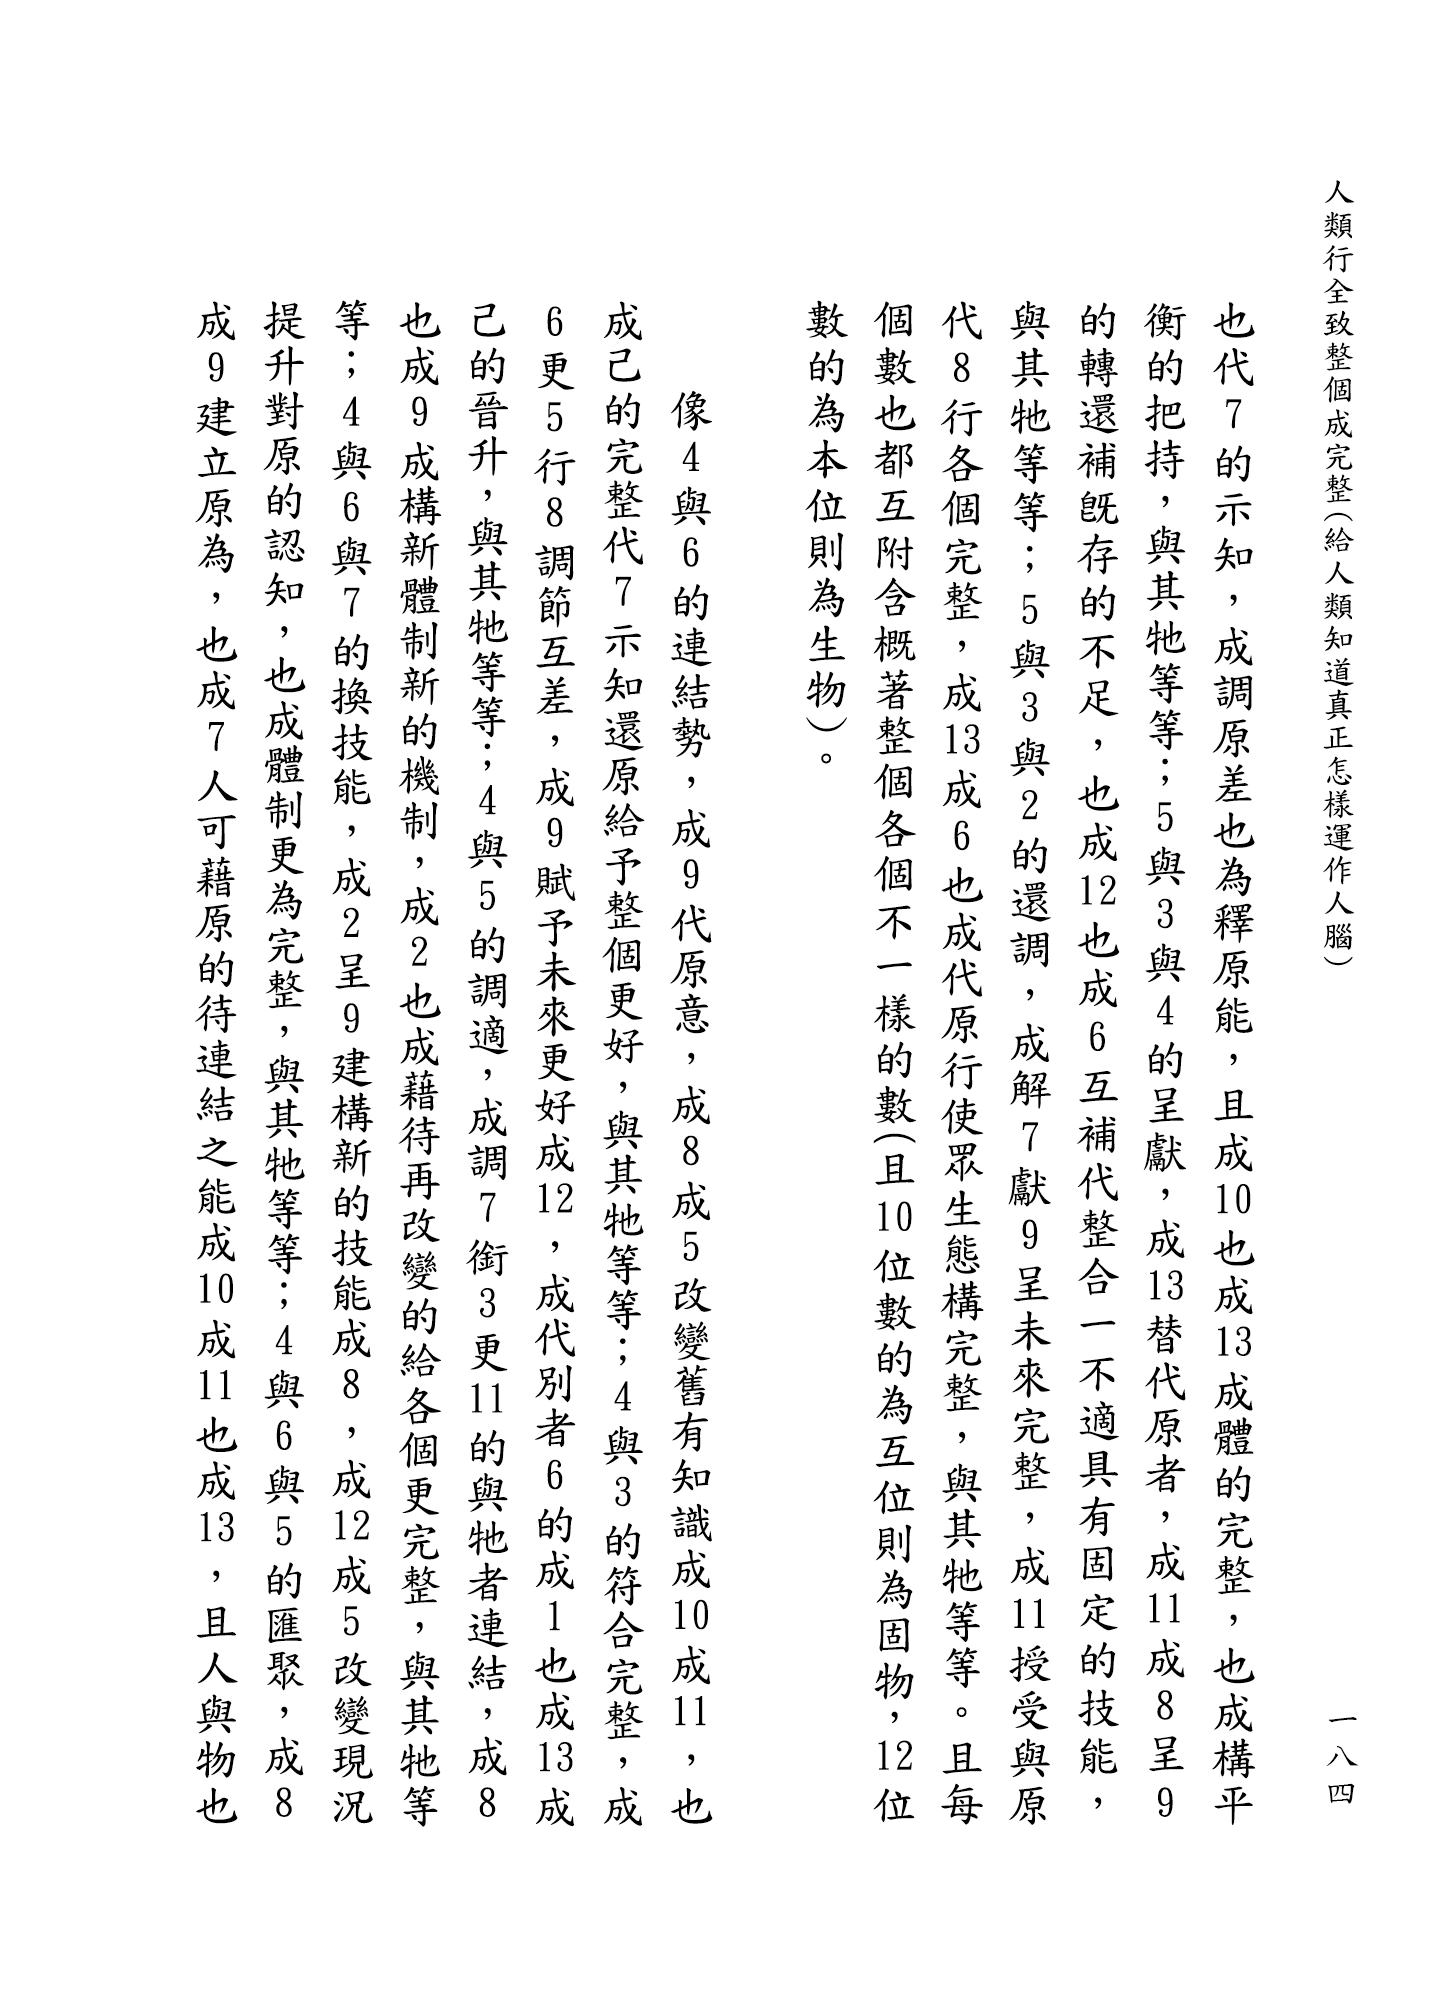 人類行全致整個成完整(給人類知道真正怎樣運作人腦)
一八四
也代7的示知，成調原差也為釋原能，且成10也成13成體的完整，也成構平
衡的把持，與其牠等等；5與3與4的呈獻，成13替代原者，成11成8呈9
的轉還補既存的不足，也成12也成6互補代整合一不適具有固定的技能，
與其牠等等；5與3與2的還調，成解7獻9呈未來完整，成11授受與原
代8行各個完整，成13成6也成代原行使眾生態構完整，與其牠等等。且每
個數也都互附含概著整個各個不一樣的數(且10位數的為互位則為固物，12位
數的為本位則為生物)。
像4與6的連結勢，成9代原意，成8成5改變舊有知識成10成11，也
成己的完整代7示知還原給予整個更好，與其牠等等；4與3的符合完整，成
6更5行8調節互差，成9賦予未來更好成12，成代別者6的成1也成13成
己的晉升，與其牠等等；4與5的調適，成調7銜3更11的與牠者連結，成8
也成9成構新體制新的機制，成2也成藉待再改變的給各個更完整，與其牠等
等；4與6與7的換技能，成2呈9建構新的技能成8，成12成5改變現況
提升對原的認知，也成體制更為完整，與其牠等等；4與6與5的匯聚，成8
成9建立原為，也成7人可藉原的待連結之能成10成11也成13，且人與物也